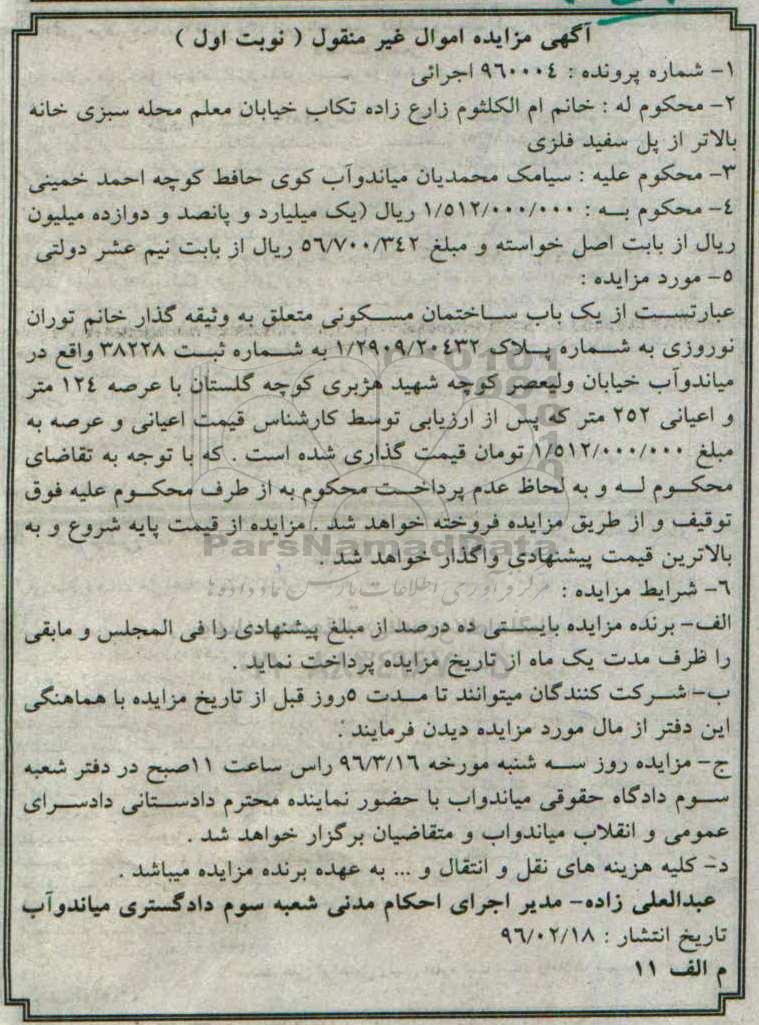 آگهی مزایده اموال غیر منقول ( نوبت اول )
۱- شماره پرونده : ۹۶۰۰۰۴ اجرائی
۲- محکوم له : خانم ام الکلثوم زارع زاده تکاب خیابان معلم محله سبزی خانه
بالاتر از پل سفید فلزی
۳- محکوم علیه : سیامک محمدیان میاندوآب کوی حافظ کوچه احمد خمینی
۴- محکوم به : ۱/۵۱۲/۰۰۰/۰۰۰ ریال (یک میلیارد و پانصد و دوازده میلیون
ریال از بابت اصل خواسته و مبلغ ۵۶/۷۰۰/۳۴۲ ریال از بابت نیم عشر دولتی
۵- مورد مزایده :
عبارتست از یک باب ساختمان مسکونی متعلق به وثیقه گذار خانم توران
نوروزی به شماره پلاک ۱/۲۹۰۹/۲۰۴۳۲ به شماره ثبت ۳۸۲۲۸ واقع در
میاندوآب خیابان ولیعصر کوچه شهید هژبری کوچه گلستان با عرصه ۱۲۴ متر
و اعیانی ۲۵۲ متر که پس از ارزیابی توسط کارشناس قیمت اعیانی و عرصه به
مبلغ ۱/۵۱۲/۰۰۰/۰۰۰ تومان قیمت گذاری شده است . که با توجه به تقاضای
محکوم له و به لحاظ عدم پرداخت محکوم به از طرف محکوم علیه فوق
توقیف و از طریق مزایده فروخته خواهد شد . مزایده از قیمت پایه شروع و به
بالاترین قیمت پیشنهادی واگذار خواهد شد .
ParsNamadData
مرکز فرآوری اطلاعات پارس نماد داده ها
۶- شرایط مزایده :
الف- برنده مزایده بایستی ده درصد از مبلغ پیشنهادی را فی المجلس و مابقی
را ظرف مدت یک ماه از تاریخ مزایده پرداخت نماید .
ب- شرکت کنندگان میتوانند تا مدت ۵روز قبل از تاریخ مزایده با هماهنگی
این دفتر از مال مورد مزایده دیدن فرمایند .
ج- مزایده روز سه شنبه مورخه ۹۶/۳/۱۶ راس ساعت ۱۱صبح در دفتر شعبه
سوم دادگاه حقوقی میاندواب با حضور نماینده محترم دادستانی دادسرای
عمومی و انقلاب میاندواب و متقاضیان برگزار خواهد شد .
د- کلیه هزینه های نقل و انتقال و ... به عهده برنده مزایده میباشد .
عبدالعلی زاده- مدیر اجرای احکام مدنی شعبه سوم دادگستری میاندوآب
تاریخ انتشار : ۹۶/۰۲/۱۸
م الف ۱۱